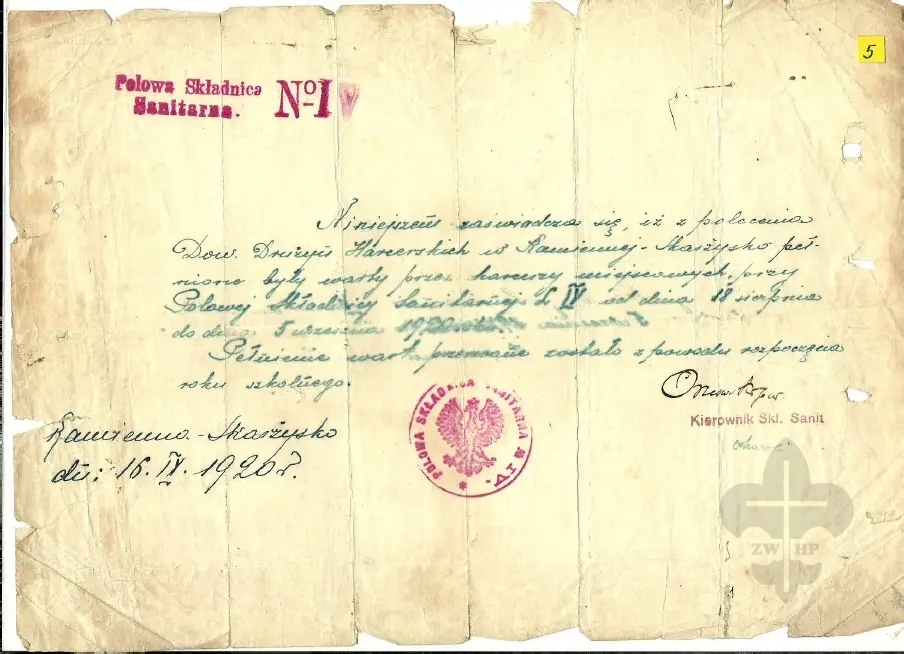 5
Polowa Składnica
Sanitarna. № IV
Niniejszem zaświadcza się, iż z polecenia
Dow. Drużyn Harcerskich w Kamiennej-Skarżysko peł-
nione były warty przez harcerzy miejscowych przy
Polowej Składnicy Sanitarnej № IV od dnia 18 sierpnia
do dnia 5 września 1920 roku.
Pełnienie wart przerwane zostało z powodu rozpoczęcia
roku szkolnego.
Kierownik Skł. Sanit
Kamienna-Skarżysko
dn: 16. IX. 1920 r.
POLOWA SKŁADNICA SANITARNA № IV.
ZW HP